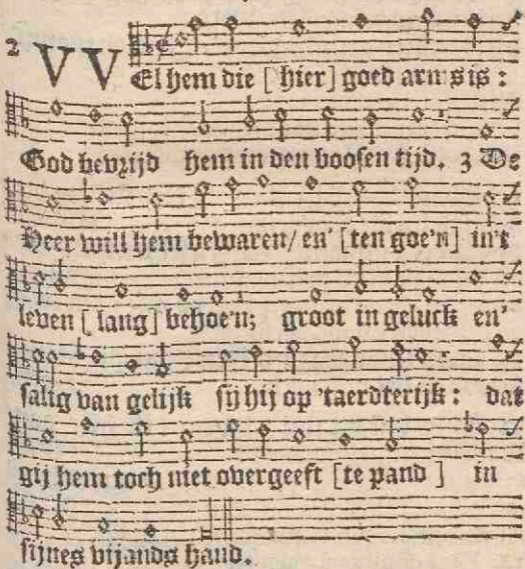 2 VVEl hem die [ hier] goed arms is :
God bevrijd hem in den boosen tijd. 3 De
Heer will hem bewaren/ en' [ten goe'n] in't
leven [ lang] behoe'n; groot in geluck en'
salig van gelijk sij hij op 'taerdterijk : dat
gij hem toch niet overgeeft [te pand ] in
sijnes vijands hand.